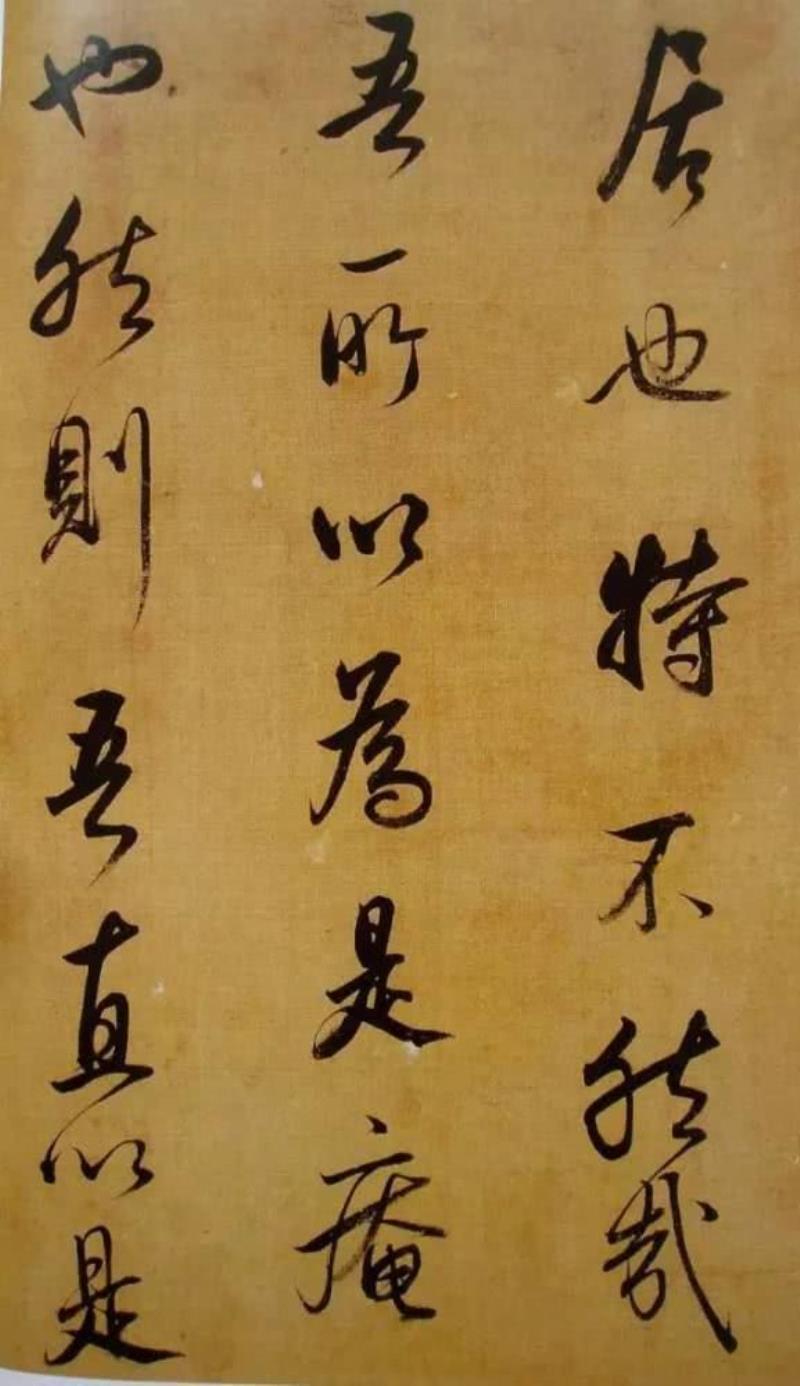 居也特不然哉
吾所以為是庵
也然則吾直以是